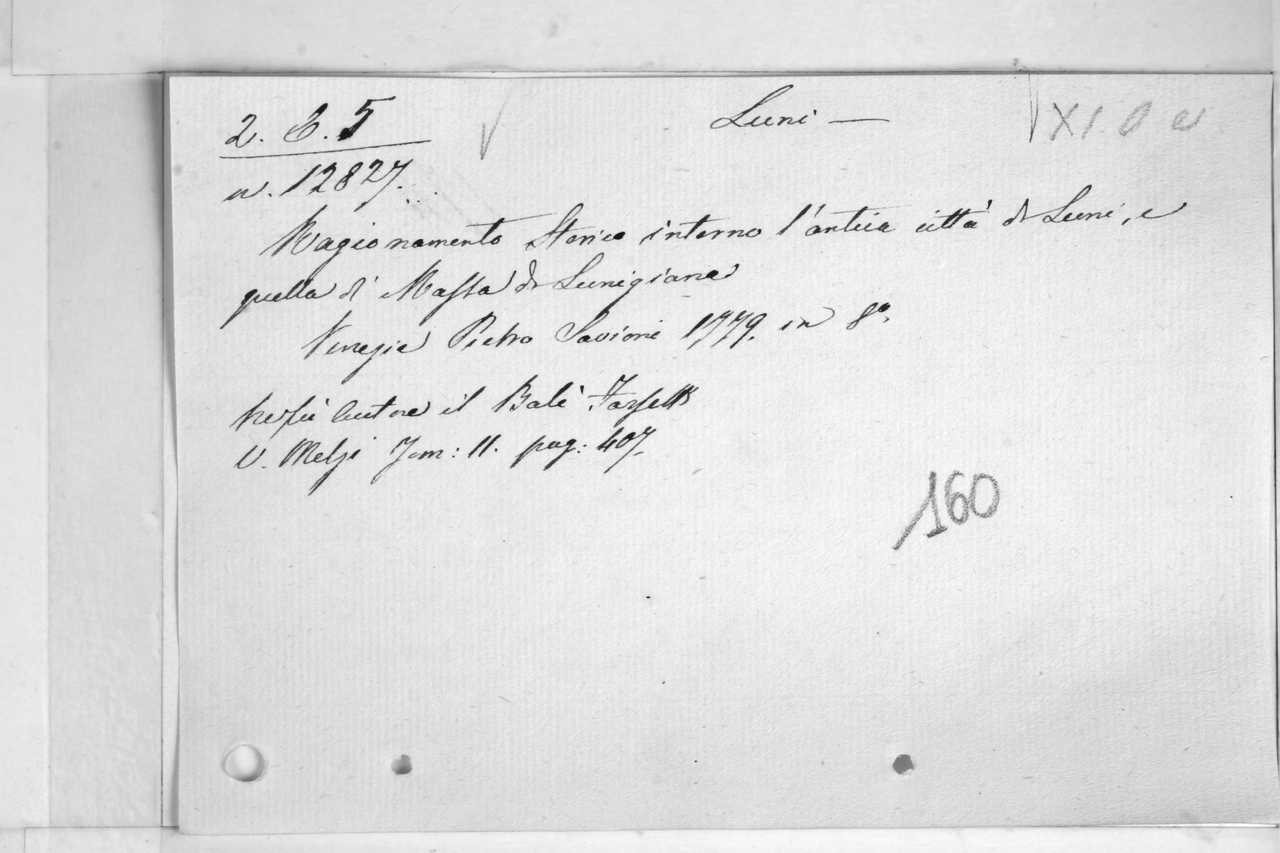 2. E. 5
Luni —
XI. O a
n. 12827.
Ragionamento Storico intorno l'antica città di Luni, e
quella di Massa di Lunigiana
Venezia Pietro Savioni 1779. in 8°.
Ne fu Autore il Balì Farsetti
V. Melzi Tom: II. pag: 407.
160